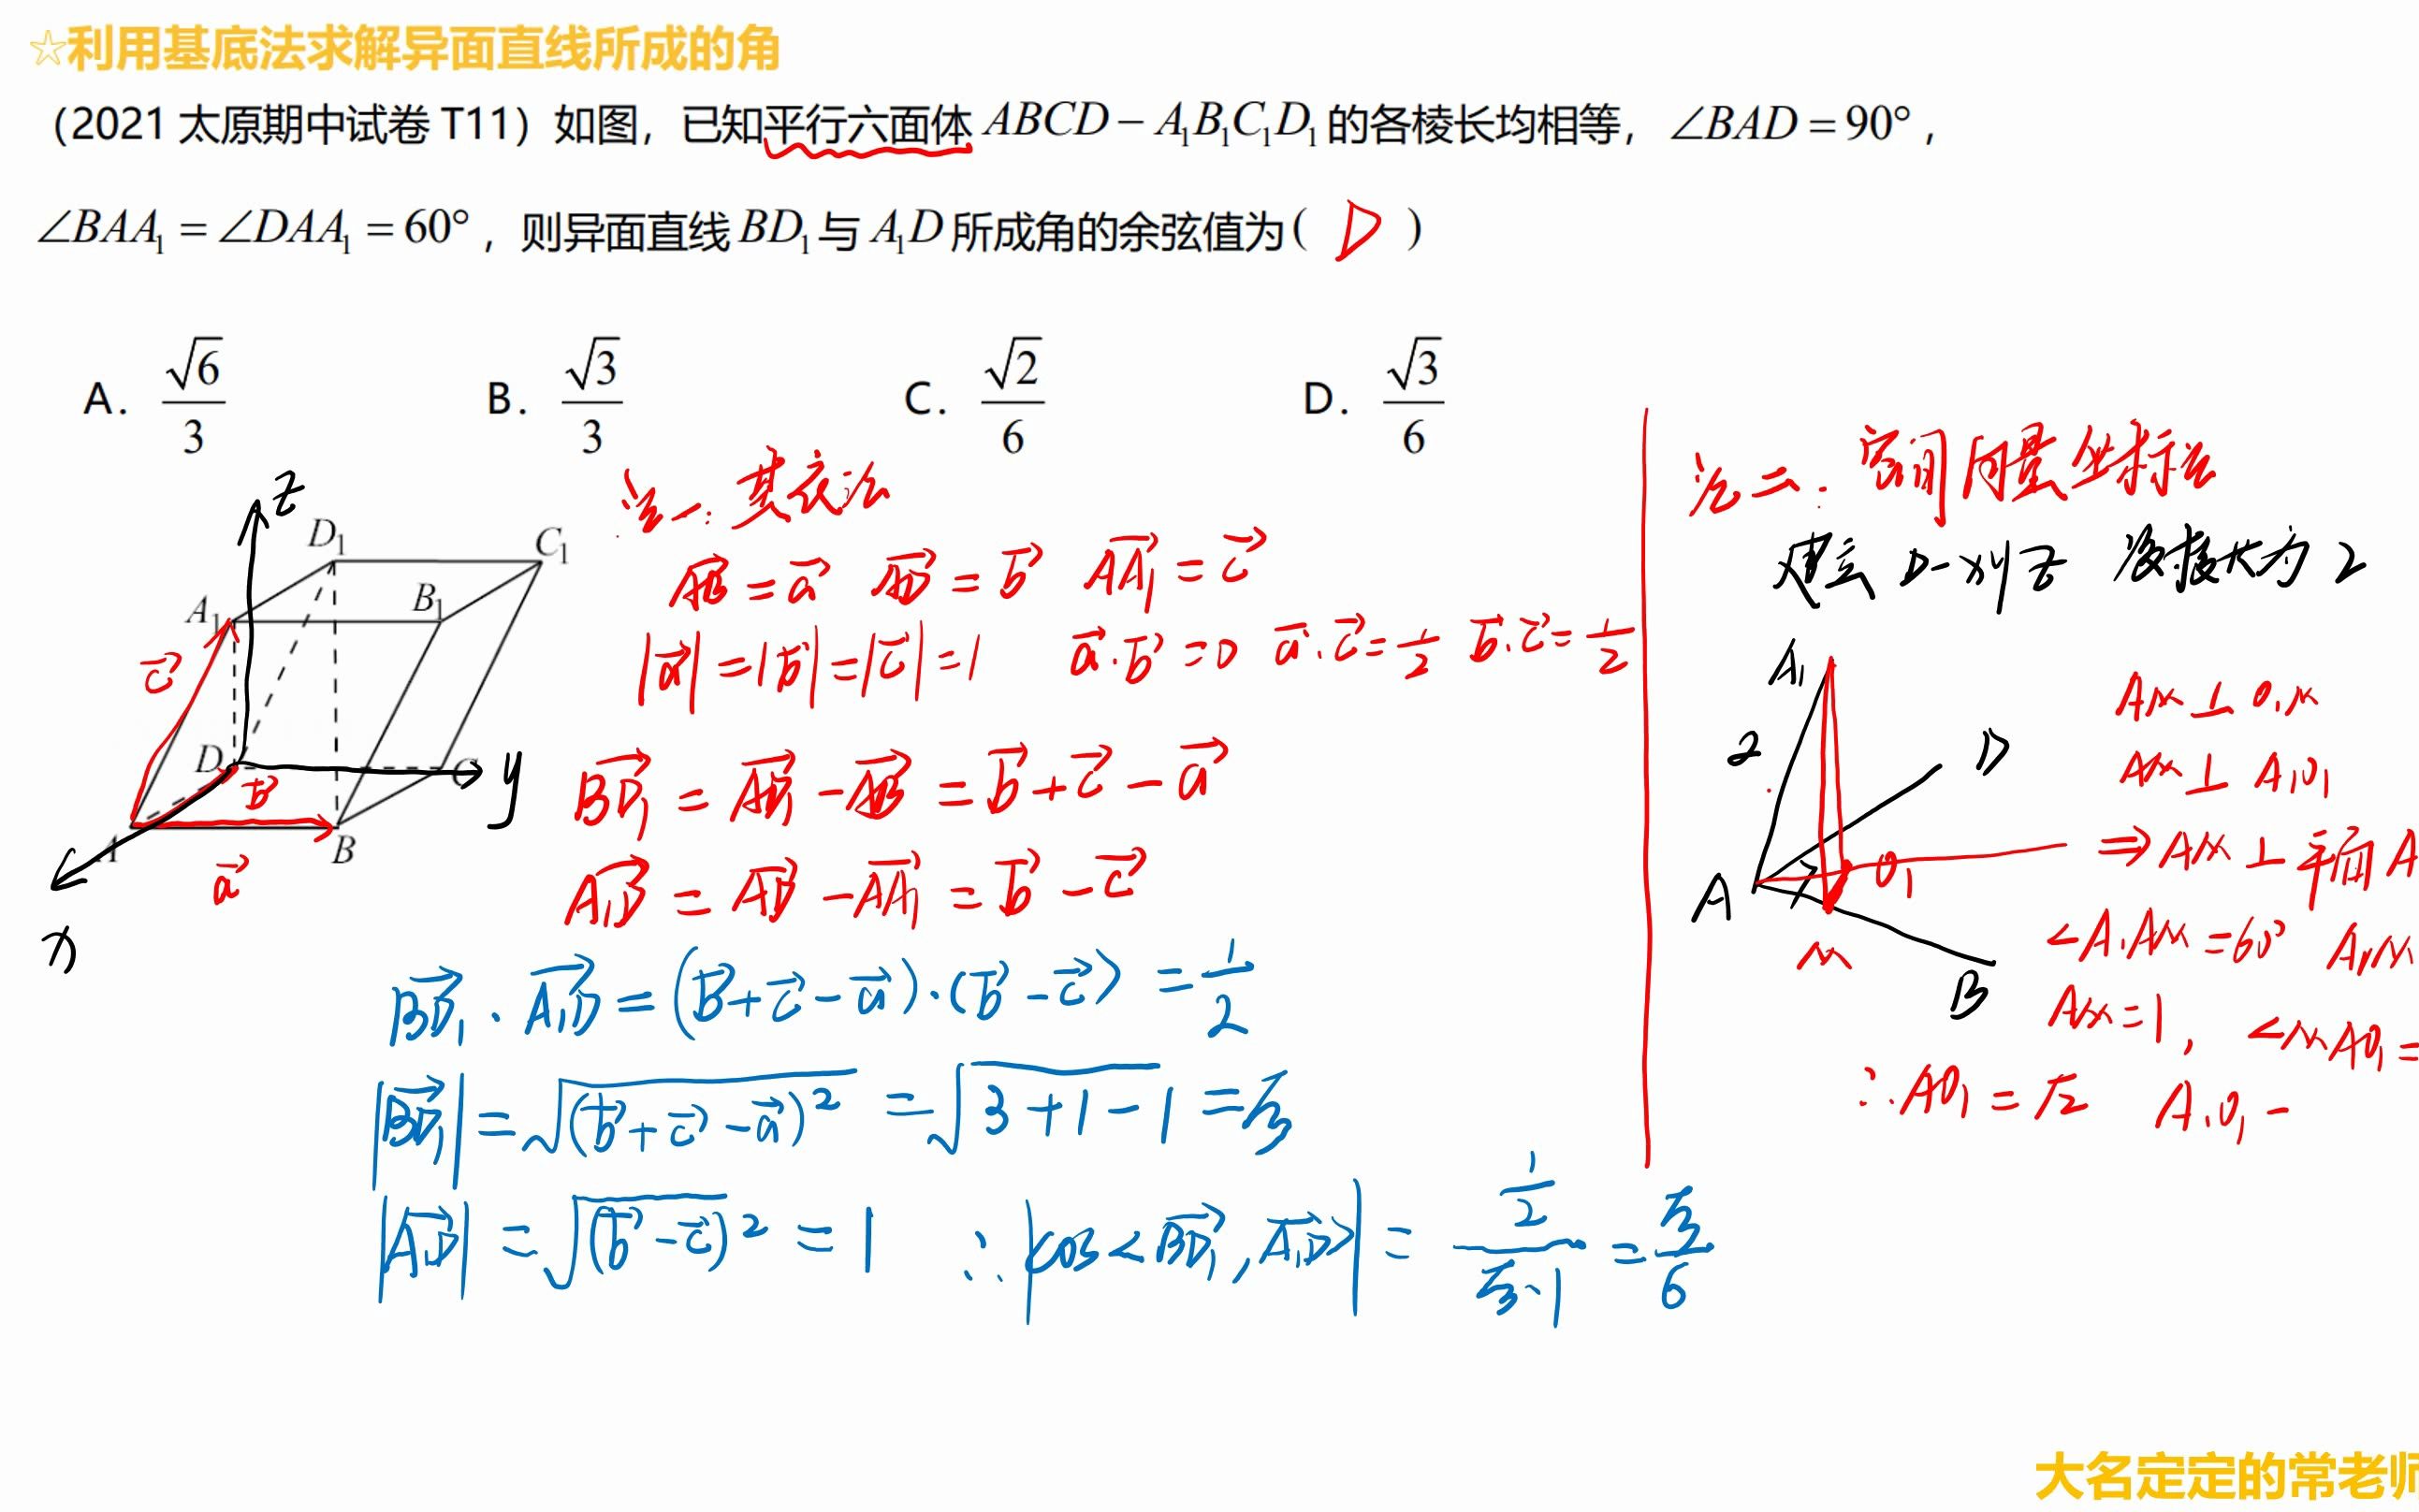 ☆利用基底法求解异面直线所成的角
（2021 太原期中试卷 T11）如图，已知平行六面体 ABCD − A₁B₁C₁D₁ 的各棱长均相等，∠BAD = 90°，
∠BAA₁ = ∠DAA₁ = 60°，则异面直线 BD₁ 与 A₁D 所成角的余弦值为（ D ）
A. √6/3 B. √3/3 C. √2/6 D. √3/6
z
D₁ C₁
A₁ B₁
c⃗
D C y
b⃗
A B
a⃗
x
法一: 基底法
AB⃗ = a⃗ AD⃗ = b⃗ AA₁⃗ = c⃗
|a⃗| = |b⃗| = |c⃗| = 1 a⃗·b⃗ = 0 a⃗·c⃗ = 1/2 b⃗·c⃗ = 1/2
BD₁⃗ = AD₁⃗ − AB⃗ = b⃗ + c⃗ − a⃗
A₁D⃗ = AD⃗ − AA₁⃗ = b⃗ − c⃗
BD₁⃗ · A₁D⃗ = (b⃗ + c⃗ − a⃗)·(b⃗ − c⃗) = 1/2
|BD₁⃗| = √(b⃗ + c⃗ − a⃗)² = √3+1−1 = √3
|A₁D⃗| = √(b⃗ − c⃗)² = 1 ∴ |cos<BD₁⃗, A₁D⃗>| = (1/2)/(√3·1) = √3/6
法二: 空间向量坐标法
建立 D-xyz 设棱长为 2
A₁
2
D
A
O₁
M
B
AM ⊥ O₁M
AM ⊥ A₁O₁
⇒ AM ⊥ 平面 A
∠A₁AM = 60° A₁M
AM = 1, ∠MAO₁ =
∴ AO₁ = √2 A₁O₁ −
大名定定的常老师